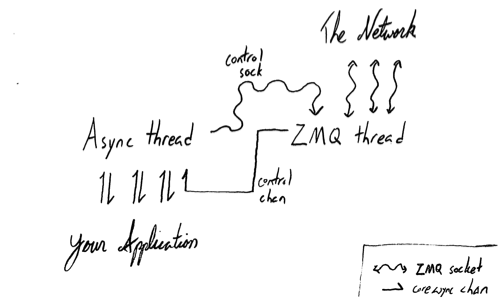 The Network
control
sock
Async thread
ZMQ thread
control
chan
Your Application
ZMQ socket
core.async chan